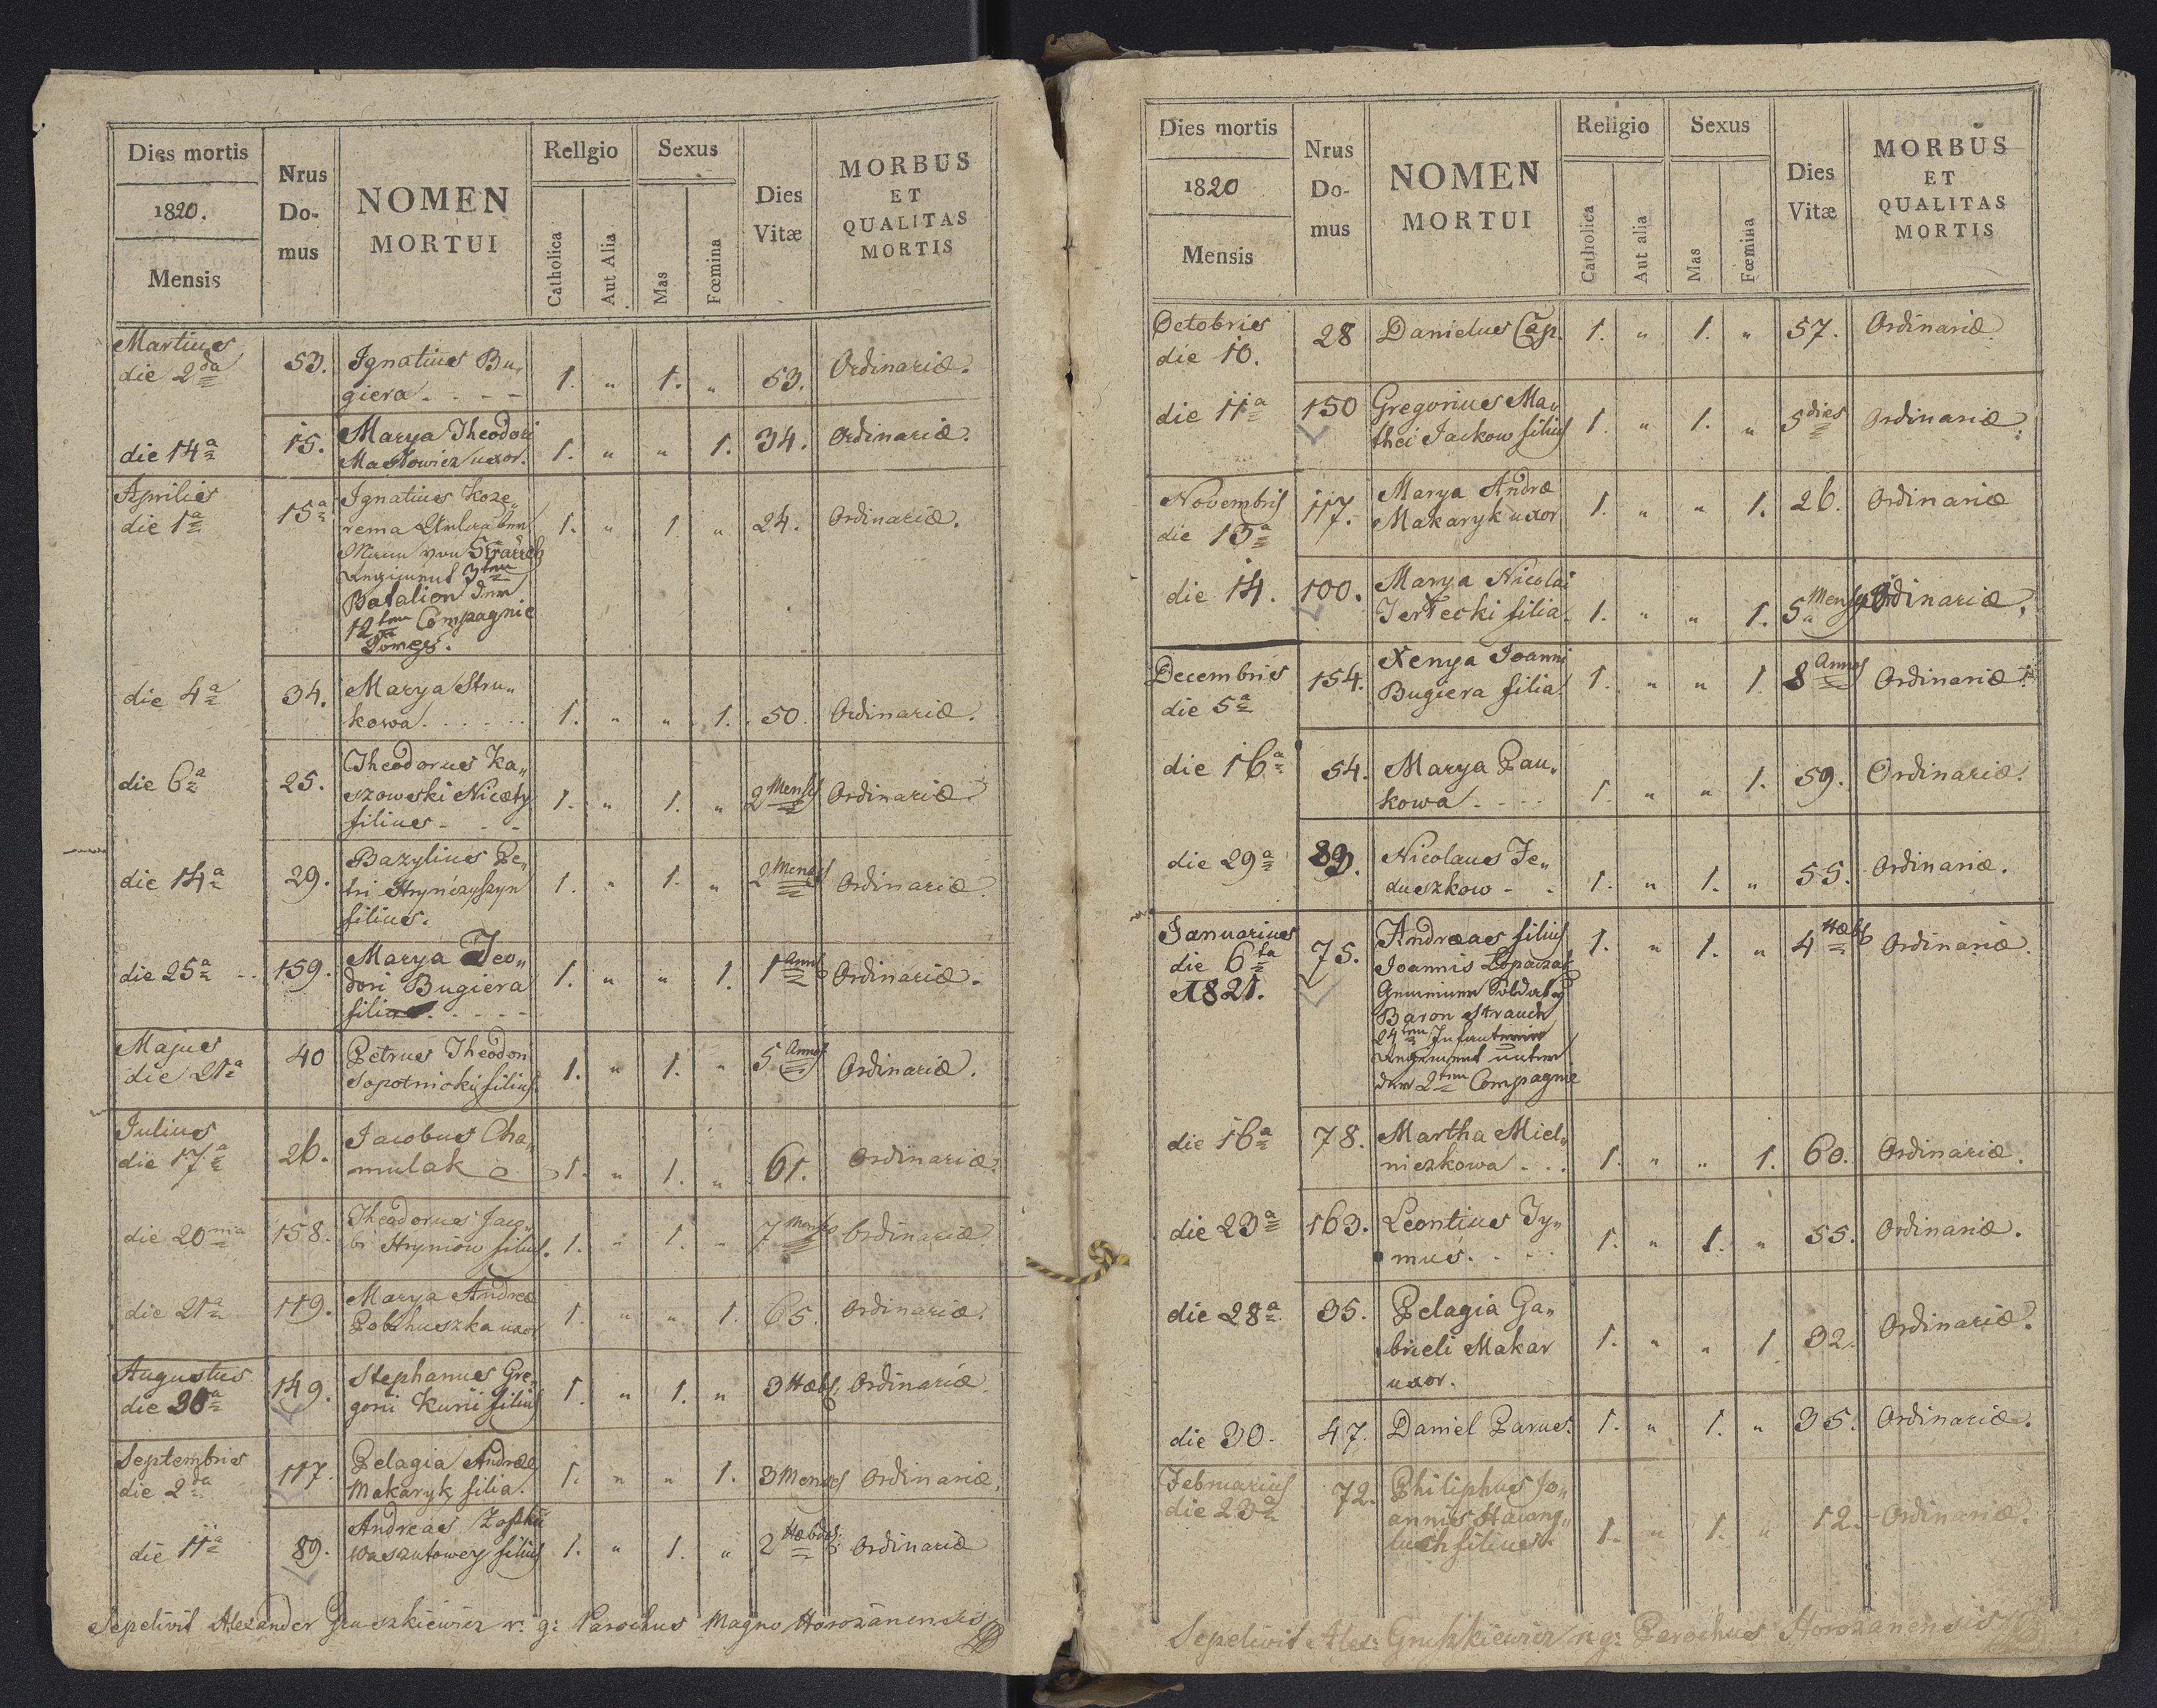 Dies mortis
1820.
Mensis
Nrus
Do-
mus
NOMEN
MORTUI
Rellgio
Catholica
Aut Alia
Sexus
Mas
Fœmina
Dies
Vitæ
MORBUS
ET
QUALITAS
MORTIS
Martius
die 2da 53. Ignatius Bu„
giera 1. „ 1. „ 53. Ordinariæ.
die 14a 15. Marya Theodori
uxor. 1. „ „ 1. 34. Ordinariæ.
Aprilis
die 1a 15a Ignatius Koze„
rema 1. „ 1 „ 24. Ordinariæ.
von Strauch
Regiment 3ten
Batalion der
12ten Compagnie
die 4a 34. Marya Stru„
kowa 1. „ „ 1. 50. Ordinariæ.
die 6a 25. Theodorus Ka„
szowski Nicety
filius 1. „ 1. „ 2 Menses Ordinariæ.
die 14a 29. Bazylius Pe„
tri Hrynczyszyn
filius. 1. „ 1. „ 2 Menses Ordinariæ.
die 25a 159. Marya Teo„
dori Bugiera
filia 1. „ „ 1. 1 Ordinariæ.
Majus
die 21a 40 Petrus Theodori
Sopotnicki filius 1. „ 1. „ 5 Annos Ordinariæ.
Julius
die 17a 26. Jacobus Cha„
mulak 1. „ 1. „ 61. Ordinariæ.
die 20ma 158. Theodorus Jaco„
bi Hryniow filius. 1. „ 1. „ 7 Menses Ordinariæ.
die 21a 119. Marya Andreæ
uxor 1. „ „ 1. 65. Ordinariæ.
Augustus
die 149. Stephanus Gre„
gorii Kurii filius 1. „ 1. „ 3 Hebd. Ordinariæ.
Septembris
die 2da 117. Pelagia Andreæ
Makaryk filia. 1. „ „ 1. 3 Menses Ordinariæ.
die 11a 89. Andreas
filius 1. „ 1. „ 2 Hebdo: Ordinariæ
Sepelivit Alexander Gruszkiewicz r. g: Parochus Magno Horozanensis
Dies mortis
1820
Mensis
Nrus
Do-
mus
NOMEN
MORTUI
Religio
Catholica
Aut alia
Sexus
Mas
Fœmina
Dies
Vitæ
MORBUS
ET
QUALITAS
MORTIS
Octobris
die 10. 28 Danielus Cap. 1. „ 1. „ 57. Ordinariæ
die 11a 150 Gregorius Ma„
thei Jackow filius 1. „ 1. „ 5 dies Ordinariæ.
Novembris
die 13a 117. Marya Andræ
Makaryk uxor 1. „ „ 1. 26. Ordinariæ
die 14. 100. Marya Nicolai
Jertecki filia. 1. „ „ 1. 5 Menses Ordinariæ.
Decembris
die 5a 154. Xenya Joanni
Bugiera filia. 1. „ „ 1. 8 Annos Ordinariæ.
die 16a 54. Marya Pau„
kowa 1. „ „ 1. 59. Ordinariæ.
die 29a 89. Nicolaus Fe„
duszkow 1. „ 1. „ 55. Ordinariæ.
Januarius
die 6ta
1821. 75. Andreas filius
Joannis Lopaczak 1. „ 1. „ 4 Hebd Ordinariæ.
Gemeiner Soldat
Baron Strauch
24ten Infanterie
Regiment unter
der 2ten Compagnie
die 16a 78. Martha Miel„
niczkowa 1. „ „ 1. 60. Ordinariæ.
die 23a 163. Leontius Ty„
mus. 1. „ 1. „ 55. Ordinariæ.
die 28a 35. Pelagia Ga„
brieli Makar
uxor. 1. „ „ 1 32. Ordinariæ.
die 30. 47. Daniel Parus. 1. „ 1. „ 35. Ordinariæ.
Februarius
die 23a 72. Philiphus Jo„
annis
filius. 1. „ 1. „ 12. Ordinariæ.
Sepelivit Alex: Gruszkiewicz r. g: Parochus Horozanensis